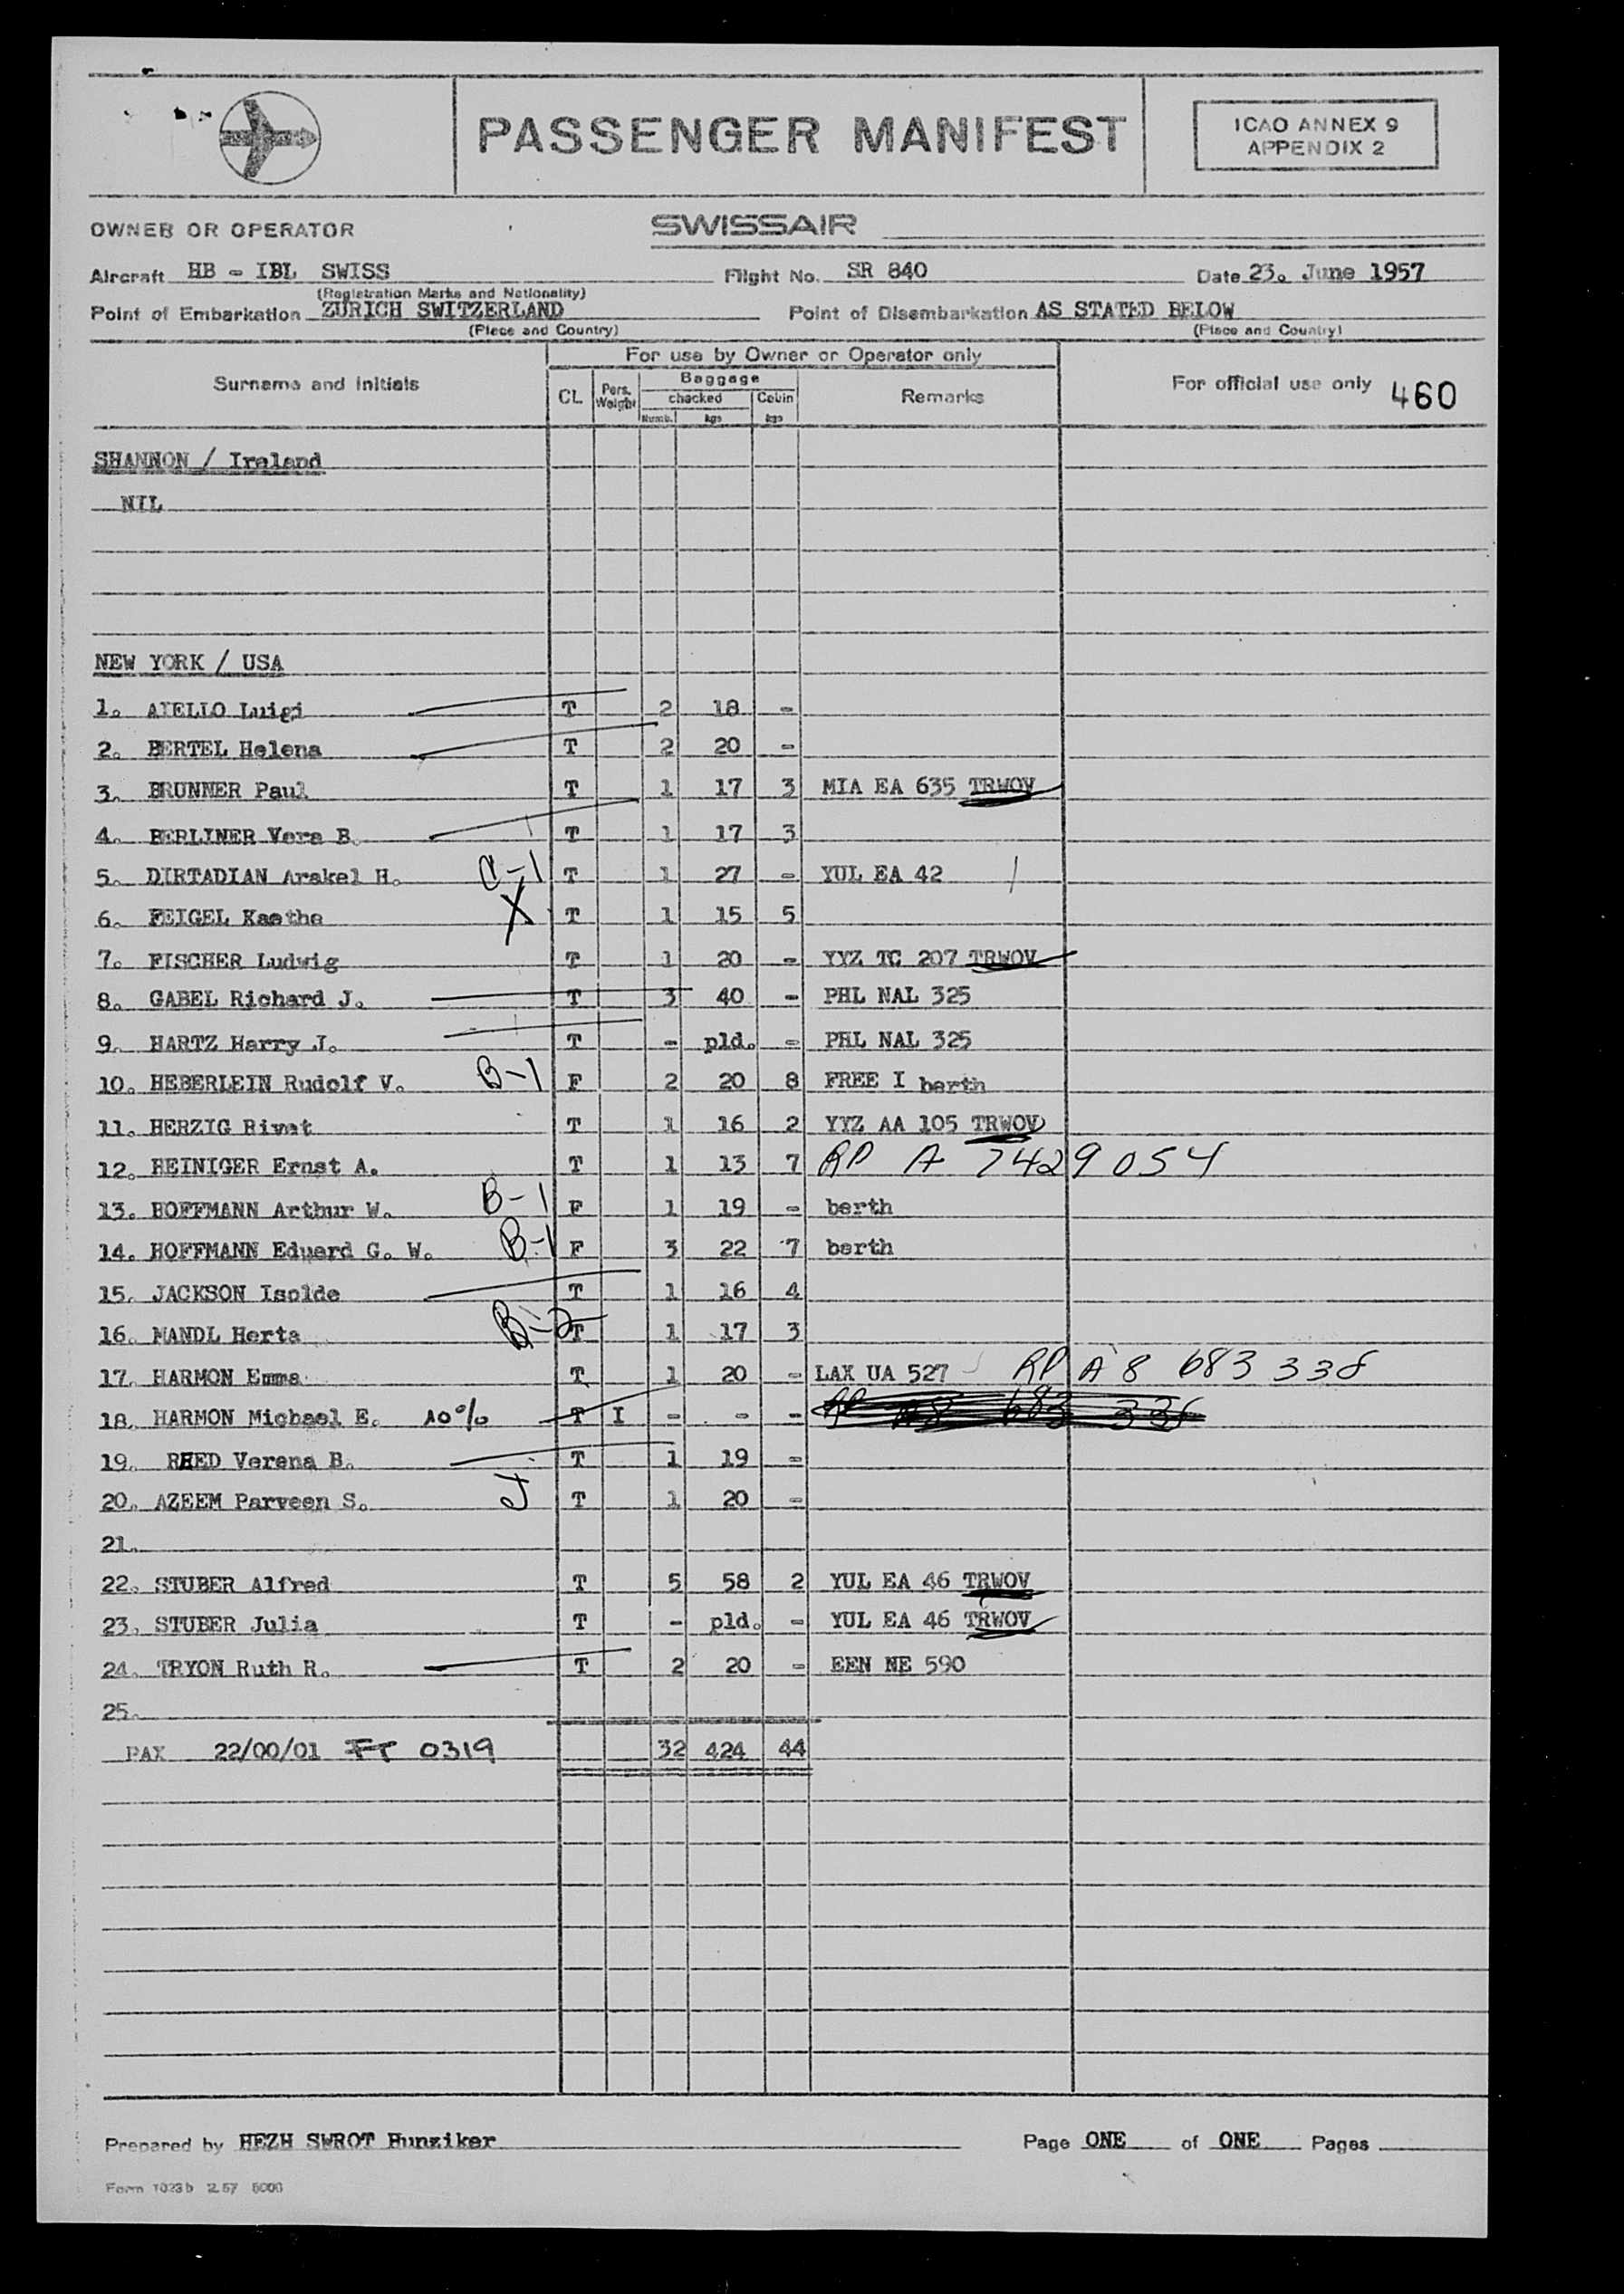 PASSENGER MANIFEST
ICAO ANNEX 9
APPENDIX 2
OWNER OR OPERATOR SWISSAIR
Aircraft HB - IBL SWISS Flight No. SR 840 Date 23. June 1957
(Registration Marks and Nationality)
Point of Embarkation ZURICH SWITZERLAND Point of Disembarkation AS STATED BELOW
(Place and Country) (Place and Country)
For use by Owner or Operator only
Surname and initials CL Pers. Weight Baggage checked Cabin Remarks For official use only 460
Numb. kgs kgs
SHANNON / Ireland
NIL
NEW YORK / USA
1. AIELLO Luigi T 2 18 -
2. BERTEL Helena T 2 20 -
3. BRUNNER Paul T 1 17 3 MIA EA 635 TRWOV
4. BERLINER Vera B. T 1 17 3
5. DIRTADIAN Arakel H. C-1 T 1 27 - YUL EA 42
6. FEIGEL Kaethe X T 1 15 5
7. FISCHER Ludwig T 1 20 - YYZ TC 207 TRWOV
8. GABEL Richard J. T 3 40 - PHL NAL 325
9. HARTZ Harry J. T - pld. - PHL NAL 325
10. HEBERLEIN Rudolf V. B-1 F 2 20 8 FREE I berth
11. HERZIG Rivat T 1 16 2 YYZ AA 105 TRWOV
12. HEINIGER Ernst A. T 1 13 7 RP A 7429054
13. HOFFMANN Arthur W. B-1 F 1 19 - berth
14. HOFFMANN Eduard G. W. B-1 F 3 22 7 berth
15. JACKSON Isolde T 1 16 4
16. MANDL Herta B-2 T 1 17 3
17. HARMON Emma T 1 20 - LAX UA 527 RP A 8 683 338
18. HARMON Michael E. 10% T I - - - RP A8 683 338
19. REED Verena B. T 1 19 -
20. AZEEM Parveen S. T 1 20 -
21.
22. STUBER Alfred T 5 58 2 YUL EA 46 TRWOV
23. STUBER Julia T - pld. - YUL EA 46 TRWOV
24. TRYON Ruth R. T 2 20 - EEN NE 590
25.
PAX 22/00/01 FT 0319 32 424 44
Prepared by HEZH SWROT Hunziker Page ONE of ONE Pages
Form 1023b 2.57 5000